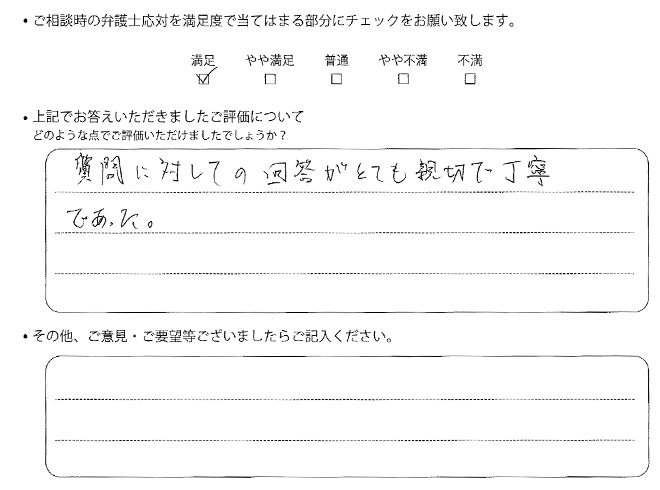 ・ご相談時の弁護士応対を満足度で当てはまる部分にチェックをお願い致します。
満足 やや満足 普通 やや不満 不満
☑ □ □ □ □
・上記でお答えいただきましたご評価について
どのような点でご評価いただけましたでしょうか？
質問に対しての回答がとても親切で丁寧
であった。
・その他、ご意見・ご要望等ございましたらご記入ください。